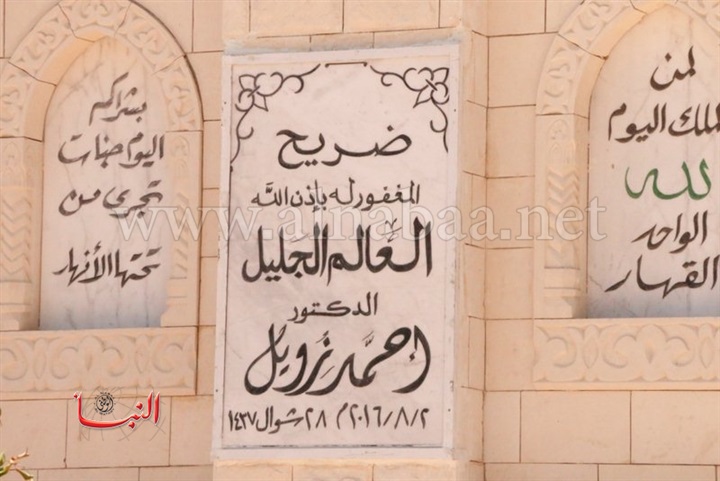 لمن
الملك اليوم
لله
الواحد
القهار
ضريح
المغفور له بإذن الله
العالم الجليل
الدكتور
أحمد زويل
٢٠١٦/٨/٢م ٢٨ شوال ١٤٣٧
بشراكم
اليوم جنات
تجري من
تحتها الأنهار
www.alnabaa.net
النبأ